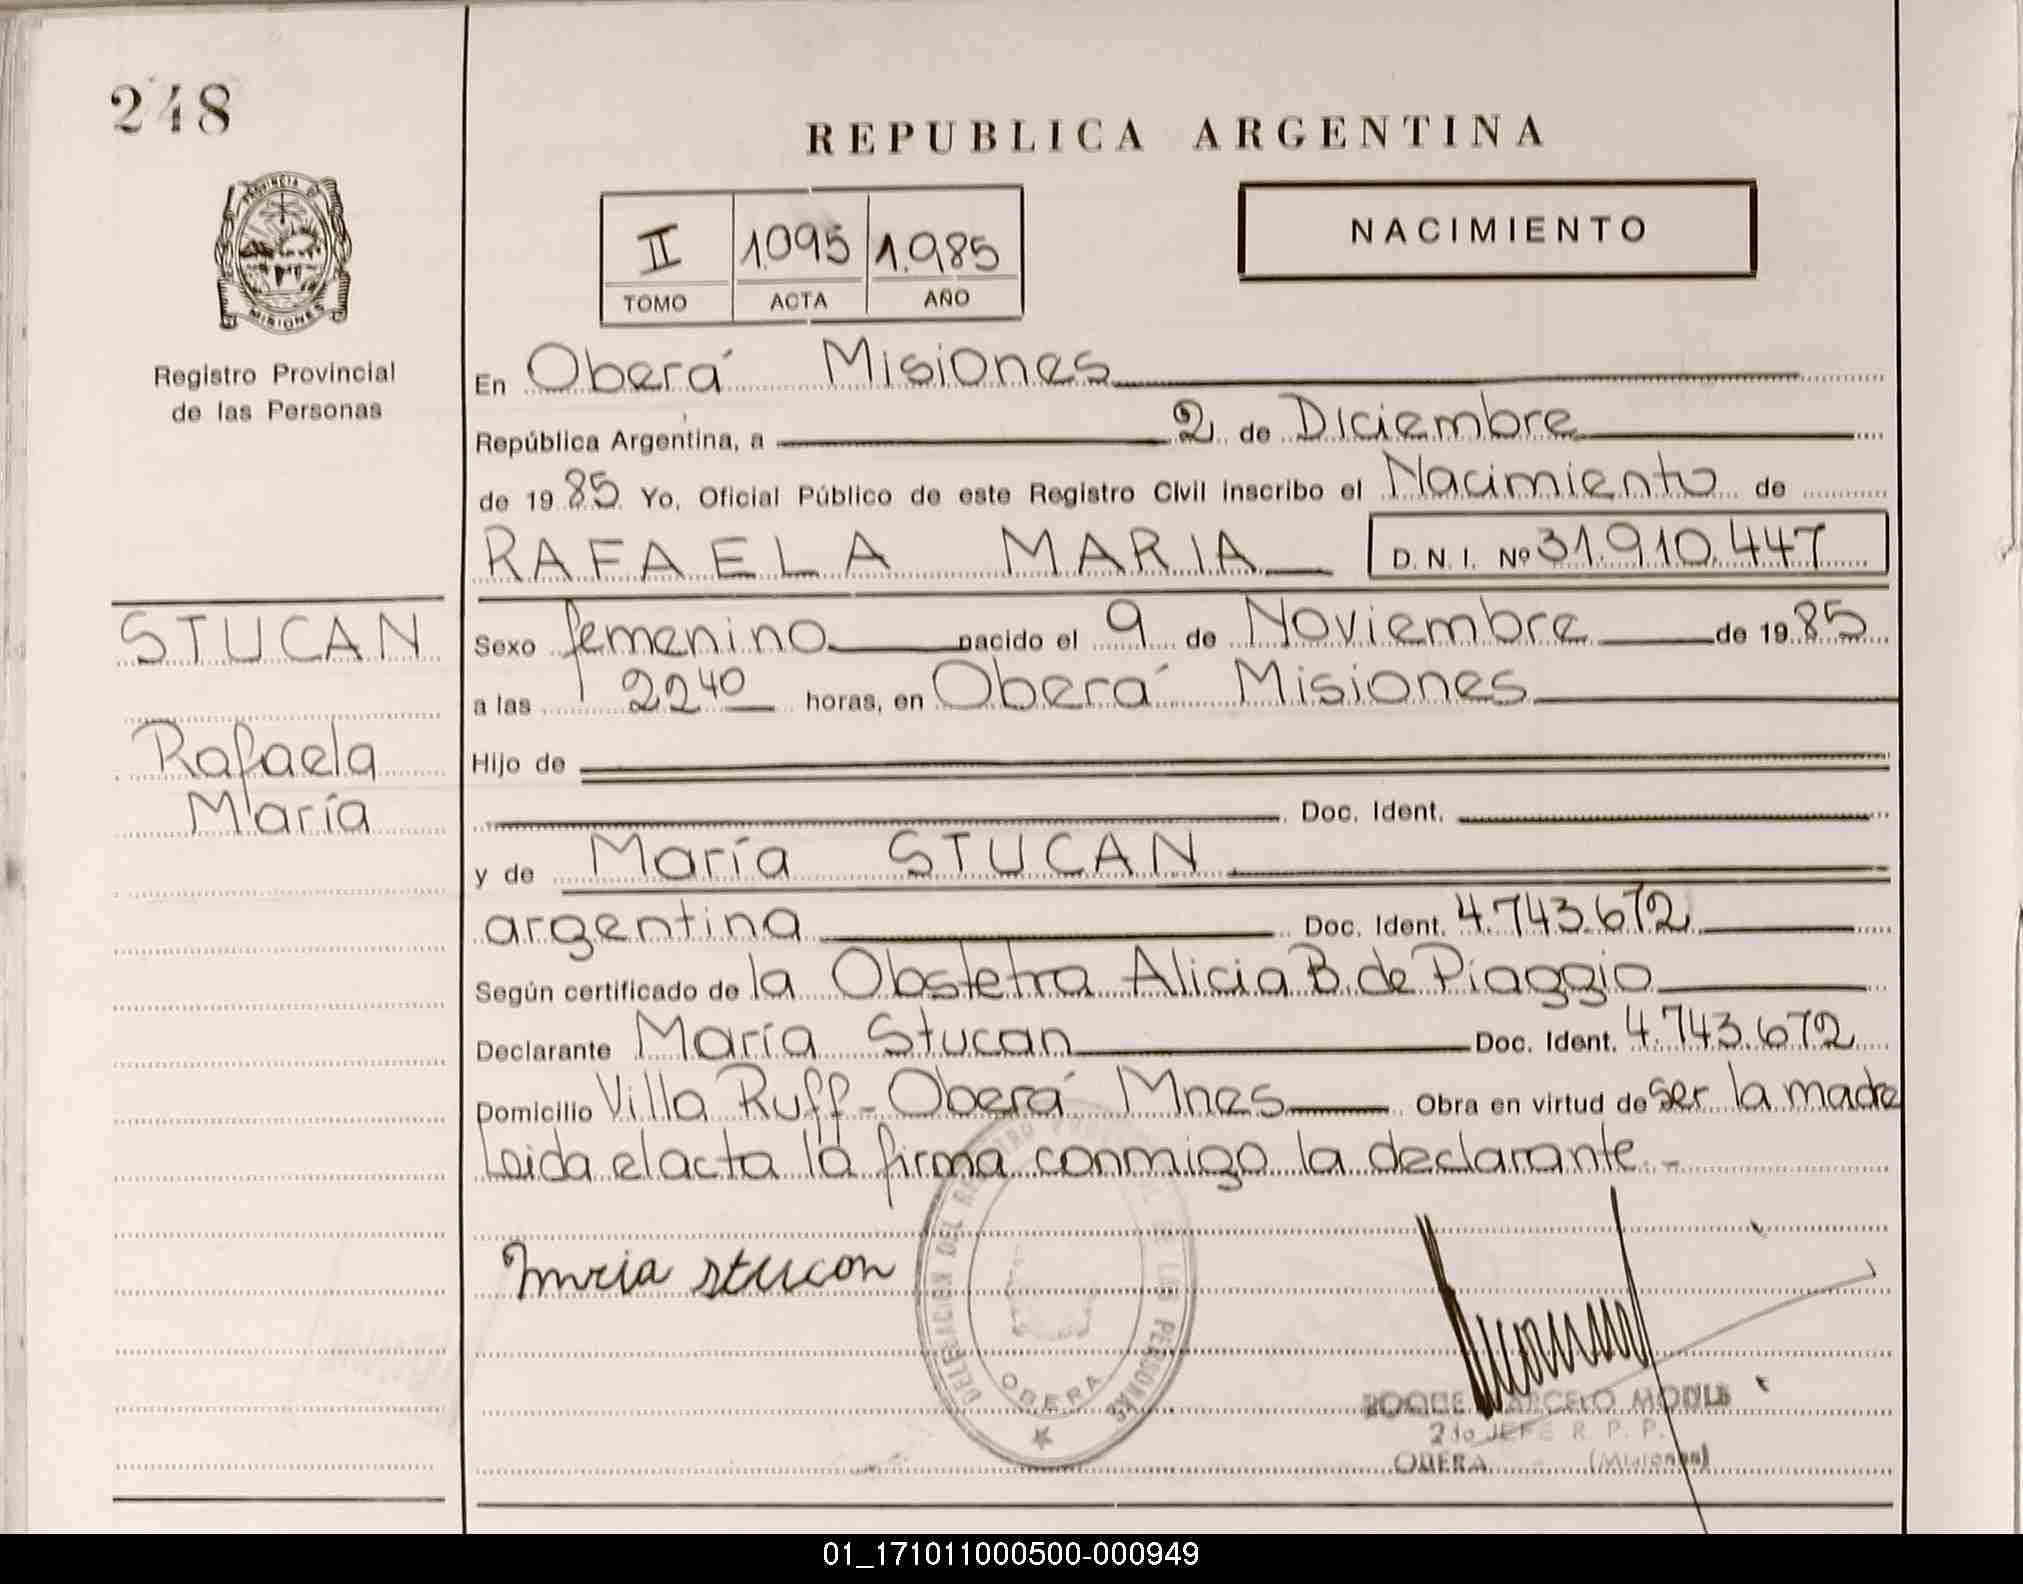 248
REPUBLICA ARGENTINA
PROVINCIA DE
MISIONES
II 1095 1.985
TOMO ACTA AÑO
NACIMIENTO
Registro Provincial
de las Personas
En Oberá Misiones
República Argentina, a 2 de Diciembre
de 1985 Yo, Oficial Público de este Registro Civil inscribo el Nacimiento de
RAFAELA MARIA D. N. I. Nº 31.910.447
STUCAN
Rafaela
María
Sexo femenino nacido el 9 de Noviembre de 1985
a las 22 40 horas, en Oberá Misiones
Hijo de
Doc. Ident.
y de María STUCAN
argentina Doc. Ident. 4.743.672
Según certificado de la Obstetra Alicia B. de Piaggio
Declarante María Stucan Doc. Ident. 4.743.672
Domicilio Villa Ruff - Oberá Mnes Obra en virtud de ser la madre
Leida el acta la firma conmigo la declarante.-
maria stucan
DELEGACION DEL REGISTRO DE LAS PERSONAS
OBERA
ROQUE
2do JEFE R. P. P.
OBERA (Misiones)
01_171011000500-000949